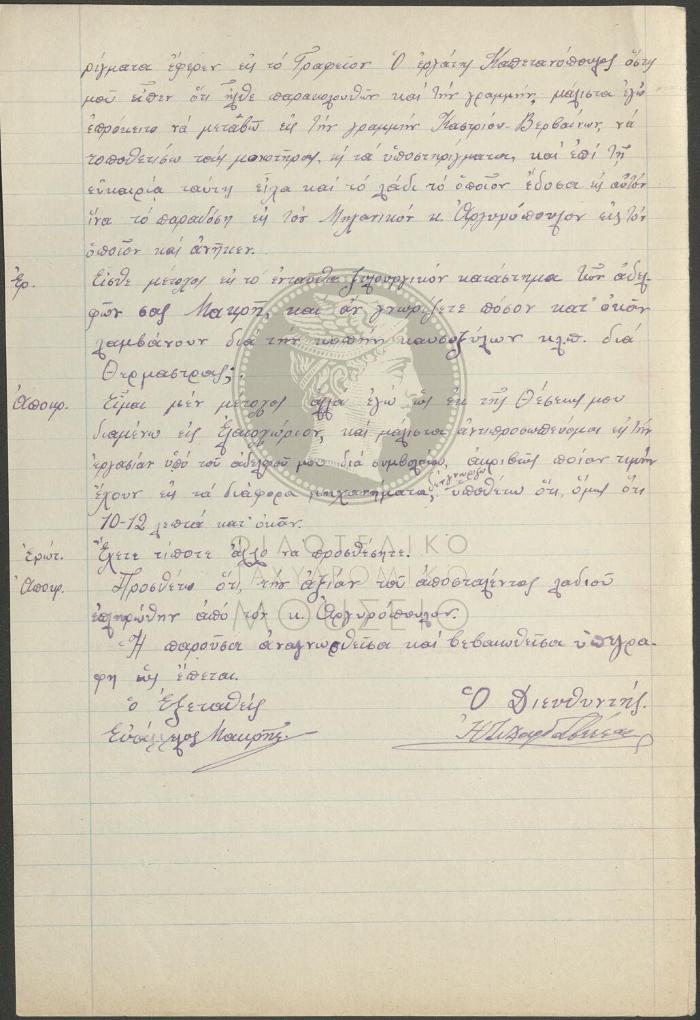 ρίγματα ἔφερεν εἰς τὸ Γραφεῖον. Ὁ ἐργάτης Καπετανόπουλος ὅστις
μοῦ εἶπεν ὅτι ἦλθε παρακολουθῶν καὶ τὴν γραμμήν, μάλιστα ἐγὼ
ἐπρόκειτο νὰ μεταβῶ εἰς τὴν γραμμὴν Καστρίου-Βερβαίνων, νὰ
τοποθετήσω τοὺς μονωτῆρας, κ τὰ ὑποστηρίγματα, καὶ ἐπὶ τῇ
εὐκαιρίᾳ ταύτῃ εἶχα καὶ τὸ λάδι τὸ ὁποῖον ἔδοσα εἰς αὐτὸν
ἵνα τὸ παραδόσῃ εἰς τὸν Μηχανικὸν κ. Ἀργυρόπουλον εἰς τὸν
ὁποῖον καὶ ἀνῆκεν.
Ἐρ. Εἶσθε μέτοχος εἰς τὸ ἐνταῦθα ξυλουργικὸν κατάστημα τῶν ἀδελ-
φῶν σας Μακρῆ, καὶ ἂν γνωρίζετε πόσον κατ' ὀκᾶν
λαμβάνουν διὰ τὴν κοπὴν καυσοξύλων κλπ. διὰ
Θερμάστρας;.
Ἀποκρ. Εἶμαι μὲν μέτοχος ἀλλὰ ἐγὼ ὡς ἐκ τῆς θέσεώς μου
διαμένω εἰς, καὶ μάλιστα ἀντιπροσωπεύομαι εἰς τὴν
ἐργασίαν ὑπὸ τοῦ ἀδελφοῦ μου διὰ συμβολαίου, ἀκριβῶς ποίαν τιμὴν
ἔχουν εἰς τὰ διάφορα μηχανήματα, δὲν γνωρίζω ὑποθέτω ὅτι, ὅμως ὅτι
10-12 λεπτὰ κατ' ὀκᾶν.
Ἐρώτ. Ἔχετε τίποτε ἄλλο νὰ προσθέσητε.
Ἀποκρ. Προσθέτω ὅτι, τὴν ἀξίαν τοῦ ἀποσταλέντος λαδιοῦ
ἐπληρώθην ἀπὸ τὸν κ. Ἀργυρόπουλον.
Ἡ παροῦσα ἀναγνωσθεῖσα καὶ βεβαιωθεῖσα ὑπεγρά-
φη ὡς ἕπεται.
ὁ Ἐξετασθείς Ὁ Διευθυντής.
Μακρῆς
ΦΙΛΟΤΕΛΙΚΟ
ΤΑΧΥΔΡΟΜΙΚΟ
ΜΟΥΣΕΙΟ